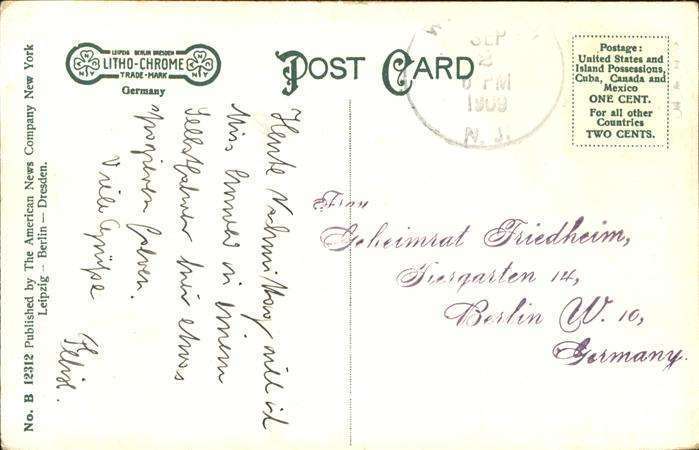 No. B 12312 Published by The American News Company New York
Leipzig — Berlin — Dresden.
LEIPZIG BERLIN DRESDEN
LITHO-CHROME
TRADE-MARK
Germany
POST CARD
SEP
8
6 PM
1909
N. J.
Postage:
United States and
Island Possessions,
Cuba, Canada and
Mexico
ONE CENT.
For all other
Countries
TWO CENTS.
Heute Nachmittag will ich
Miss in einem
Selbstfahrer hier etwas
spazieren fahren.
Viele Grüße
Felix.
Frau
Geheimrat Friedheim,
Tiergarten 14,
Berlin W. 10,
Germany.